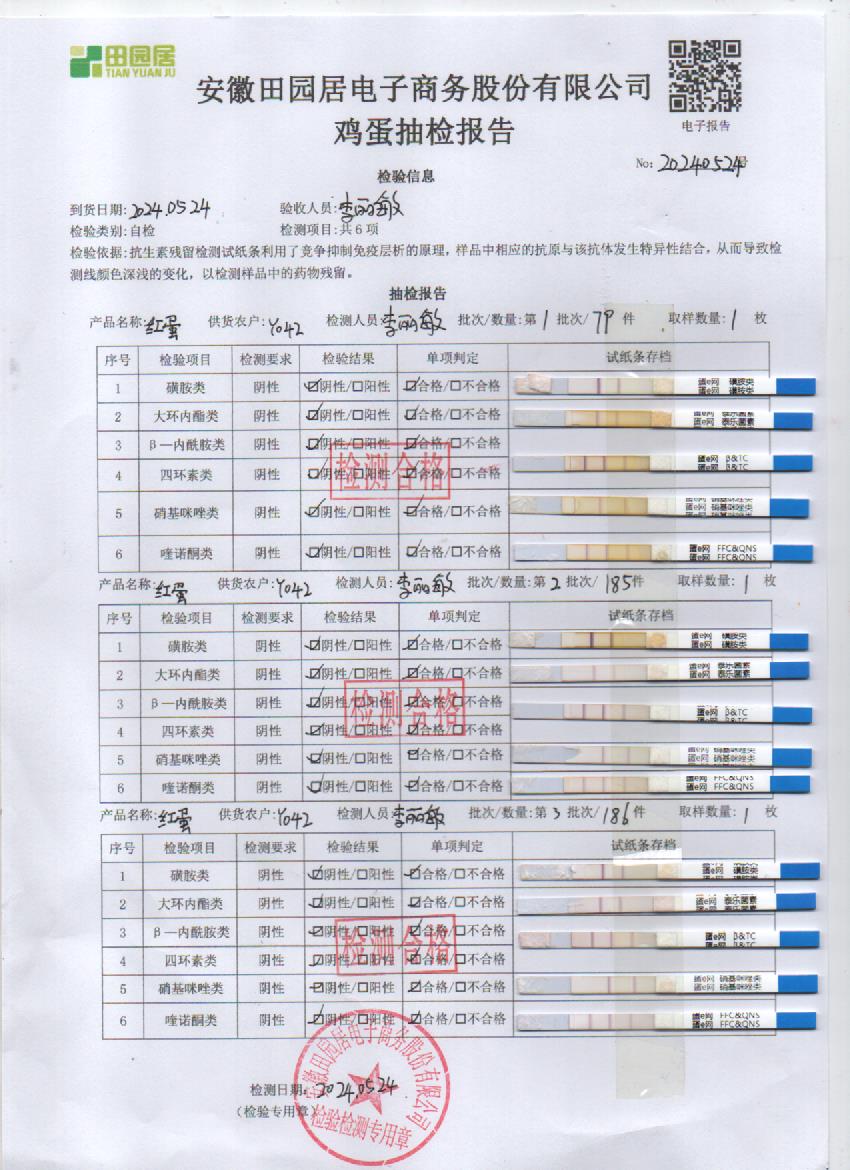 田园居
TIAN YUAN JU
安徽田园居电子商务股份有限公司
鸡蛋抽检报告
电子报告
No: 20240524号
检验信息
到货日期: 2024.05.24 验收人员: 李丽敏
检验类别: 自检 检测项目: 共6项
检验依据: 抗生素残留检测试纸条利用了竞争抑制免疫层析的原理，样品中相应的抗原与该抗体发生特异性结合，从而导致检
测线颜色深浅的变化，以检测样品中的药物残留。
抽检报告
产品名称: 红蛋 供货农户: Y042 检测人员: 李丽敏 批次/数量: 第1批次/79件 取样数量: 1枚
序号 检验项目 检测要求 检验结果 单项判定 试纸条存档
1 磺胺类 阴性 ☑阴性/☐阳性 ☑合格/☐不合格 蛋e网 磺胺类
2 大环内酯类 阴性 ☑阴性/☐阳性 ☑合格/☐不合格 蛋e网 泰乐菌素
3 β—内酰胺类 阴性 ☑阴性/☐阳性 ☑合格/☐不合格
4 四环素类 阴性 ☑阴性/☐阳性 ☑合格/☐不合格 蛋e网 β&TC
检测合格
5 硝基咪唑类 阴性 ☑阴性/☐阳性 ☑合格/☐不合格 蛋e网 硝基咪唑类
6 喹诺酮类 阴性 ☑阴性/☐阳性 ☑合格/☐不合格 蛋e网 FFC&QNS
产品名称: 红蛋 供货农户: Y042 检测人员: 李丽敏 批次/数量: 第2批次/185件 取样数量: 1枚
序号 检验项目 检测要求 检验结果 单项判定 试纸条存档
1 磺胺类 阴性 ☑阴性/☐阳性 ☑合格/☐不合格 蛋e网 磺胺类
2 大环内酯类 阴性 ☑阴性/☐阳性 ☑合格/☐不合格 蛋e网 泰乐菌素
3 β—内酰胺类 阴性 ☑阴性/☐阳性 ☑合格/☐不合格 蛋e网 β&TC
检测合格
4 四环素类 阴性 ☑阴性/☐阳性 ☑合格/☐不合格
5 硝基咪唑类 阴性 ☑阴性/☐阳性 ☑合格/☐不合格 蛋e网 硝基咪唑类
6 喹诺酮类 阴性 ☑阴性/☐阳性 ☑合格/☐不合格 蛋e网 FFC&QNS
产品名称: 红蛋 供货农户: Y042 检测人员: 李丽敏 批次/数量: 第3批次/186件 取样数量: 1枚
序号 检验项目 检测要求 检验结果 单项判定 试纸条存档
1 磺胺类 阴性 ☑阴性/☐阳性 ☑合格/☐不合格 蛋e网 磺胺类
2 大环内酯类 阴性 ☑阴性/☐阳性 ☑合格/☐不合格 蛋e网 泰乐菌素
3 β—内酰胺类 阴性 ☑阴性/☐阳性 ☑合格/☐不合格 蛋e网 β&TC
检测合格
4 四环素类 阴性 ☑阴性/☐阳性 ☑合格/☐不合格
5 硝基咪唑类 阴性 ☑阴性/☐阳性 ☑合格/☐不合格 蛋e网 硝基咪唑类
6 喹诺酮类 阴性 ☑阴性/☐阳性 ☑合格/☐不合格 蛋e网 FFC&QNS
安徽田园居电子商务股份有限公司
检测日期: 2024.05.24
(检验专用章)
检验检测专用章